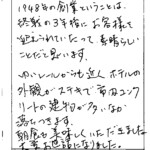 1948年の創業ということは、
終戦の3年後にお客様を
迎えられていたって素晴らし
いことだと思います。
ゆいレールからも近く ホテルの
外観がステキで 市内コンク
リートの建物が多いなか
落ちつきます。
朝食も美味しくいただきました
大変お世話になりました。